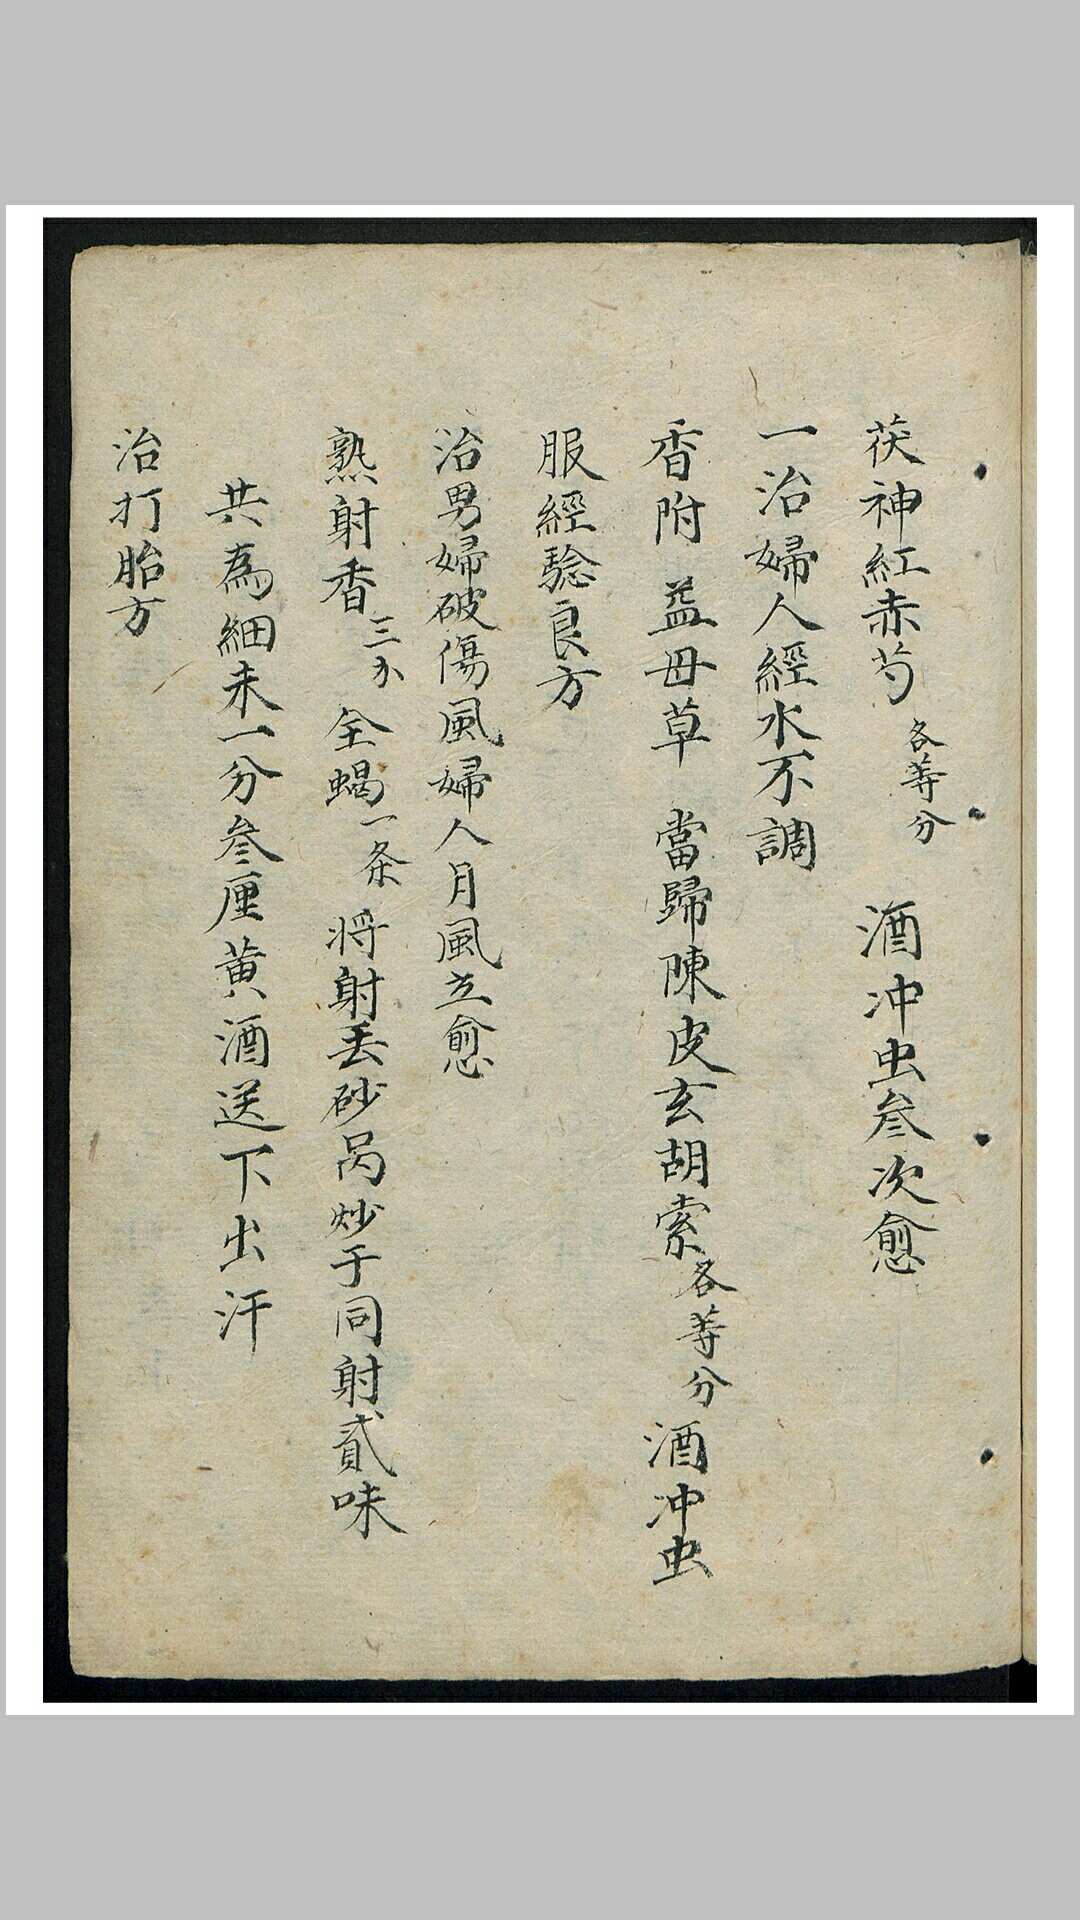 茯神紅赤芍各等分 酒冲虫叁次愈
一治婦人經水不調
香附 益母草 當歸陳皮玄胡索各等分酒冲虫
服經驗良方
治男婦破傷風婦人月風立愈
熟射香三分 全蝎一条将射丢砂呙炒于同射貳味
共為細末一分叁厘黄酒送下出汗
治打胎方